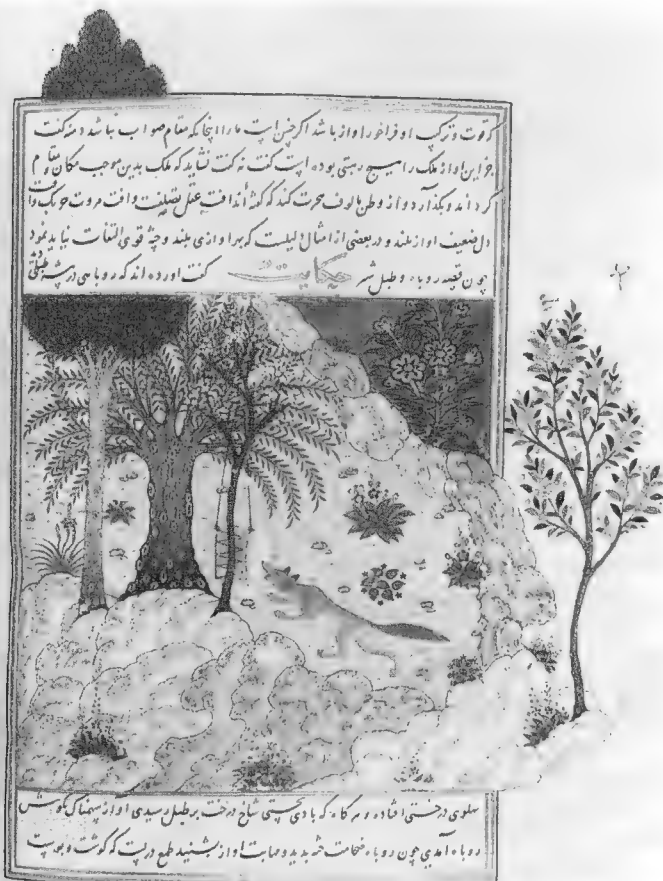 که قوت و ترکیب او فراخور آواز باشد اکر چنین است ما را اینجا نه مقام صواب باشد دمنه کفت
جز این آواز ملک را هیچ ریبتی بوده است کفت نه کفت نشاید که ملک بدین موجب مکان و مقام
کرداند و بکذارد و از وطن مالوف هجرت کند که کفته‌اند آفت عقل تصلفست و آفت مروت
دل ضعیف آواز بلند و در بعضی از امثال دلیلست که بهر آوازی بلند و جثه قوی التفات نباید نمود
چون قصه روباه و طبل حکایت کفت آورده‌اند که روباهی در بیشه طبلی
پهلوی درختی افتاده و هر کاه که باد بجستی شاخ درخت بر طبل رسیدی آواز سهمناک بکوش
روباه آمدی چون روباه ضخامت جثه بدید و مهابت آواز بشنید طمع در بست که کوشت و پوست